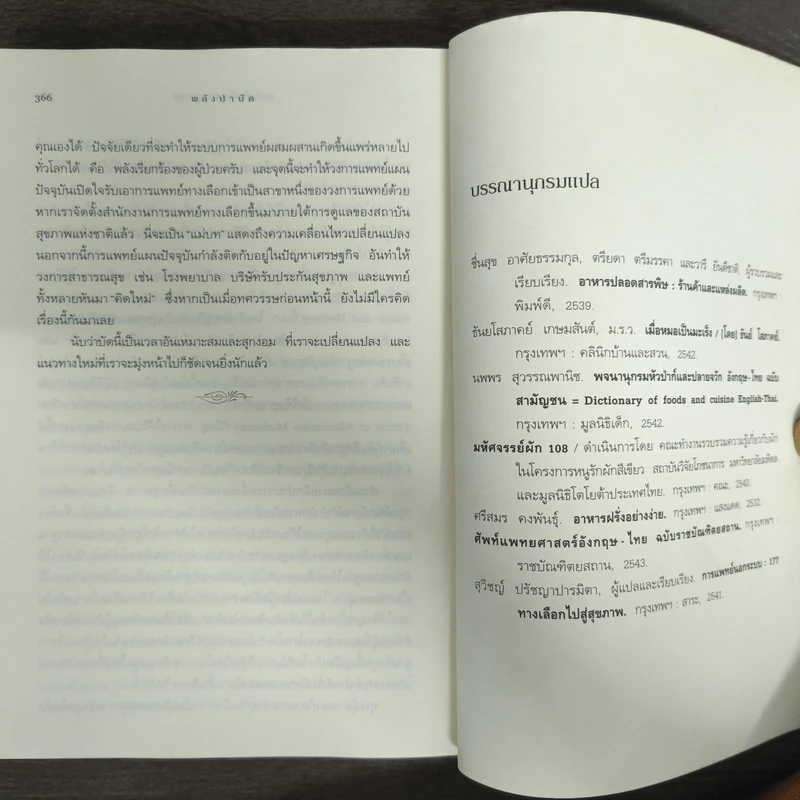 366
พลังบำบัด
คุณเองได้ ปัจจัยเดียวที่จะทำให้ระบบการแพทย์ผสมผสานเกิดขึ้นแพร่หลายไป
ทั่วโลกได้ คือ พลังเรียกร้องของผู้ป่วยครับ และจุดนี้จะทำให้วงการแพทย์แผน
ปัจจุบันเปิดใจรับเอาการแพทย์ทางเลือกเข้าเป็นสาขาหนึ่งของวงการแพทย์ด้วย
หากเราจัดตั้งสำนักงานการแพทย์ทางเลือกขึ้นมาภายใต้การดูแลของสถาบัน
สุขภาพแห่งชาติแล้ว นี่จะเป็น "แม่บท" แสดงถึงความเคลื่อนไหวเปลี่ยนแปลง
นอกจากนี้การแพทย์แผนปัจจุบันกำลังติดกับอยู่ในปัญหาเศรษฐกิจ อันทำให้
วงการสาธารณสุข เช่น โรงพยาบาล บริษัทรับประกันสุขภาพ และแพทย์
ทั้งหลายหันมา "คิดใหม่" ซึ่งหากเป็นเมื่อทศวรรษก่อนหน้านี้ ยังไม่มีใครคิด
เรื่องนี้กันมาเลย
นับว่าบัดนี้เป็นเวลาอันเหมาะสมและสุกงอม ที่เราจะเปลี่ยนแปลง และ
แนวทางใหม่ที่เราจะมุ่งหน้าไปก็ชัดเจนยิ่งนักแล้ว
บรรณานุกรมแปล
ชื่นสุข อาศัยธรรมกุล, ตรียดา ตรีมรรคา และวารี ยินดีชาติ, ผู้รวบรวมและ
เรียบเรียง. อาหารปลอดสารพิษ : ร้านค้าและแหล่งผลิต. กรุงเทพฯ :
พิมพ์ดี, 2539.
ธันยโสภาคย์ เกษมสันต์, ม.ร.ว. เมื่อหมอเป็นมะเร็ง / [โดย] ธันย์ โสภาคย์.
กรุงเทพฯ : คลินิกบ้านและสวน, 2542.
นพพร สุวรรณพานิช. พจนานุกรมหัวป่าก์และปลายจวัก อังกฤษ-ไทย ฉบับ
สามัญชน = Dictionary of foods and cuisine English-Thai.
กรุงเทพฯ : มูลนิธิเด็ก, 2542.
มหัศจรรย์ผัก 108 / ดำเนินการโดย คณะทำงานรวบรวมความรู้เกี่ยวกับผัก
ในโครงการหนูรักผักสีเขียว สถาบันวิจัยโภชนาการ มหาวิทยาลัยมหิดล
และมูลนิธิโตโยต้าประเทศไทย. กรุงเทพฯ : คณะ, 2540.
ศรีสมร คงพันธุ์. อาหารฝรั่งอย่างง่าย. กรุงเทพฯ : แสงแดด, 2532.
ศัพท์แพทยศาสตร์อังกฤษ - ไทย ฉบับราชบัณฑิตยสถาน. กรุงเทพฯ :
ราชบัณฑิตยสถาน, 2543.
สุวิชญ์ ปรัชญาปารมิตา, ผู้แปลและเรียบเรียง. การแพทย์นอกระบบ : 177
ทางเลือกไปสู่สุขภาพ. กรุงเทพฯ : สาระ, 2541.